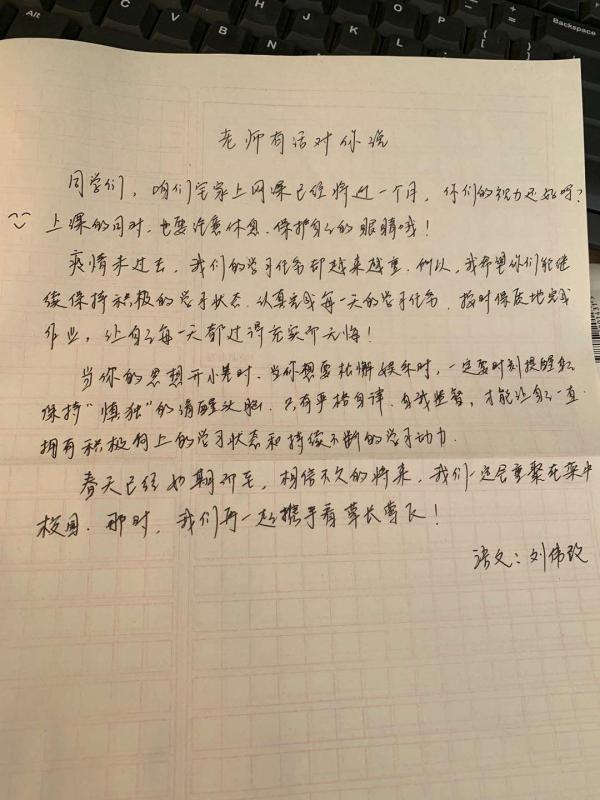 Alt
X
C
V
B
N
M
P
Backspace
老师有话对你说
同学们，咱们宅家上网课已经将近一个月，你们的视力还好吗？
上课的同时，也要注意休息，保护自己的眼睛哦！
疫情未过去，我们的学习任务却越来越重，所以，我希望你们能继
续保持积极的学习状态，认真完成每一天的学习任务，按时保质地完成
作业，让自己每一天都过得充实而无悔！
当你的思想开小差时，当你想要松懈娱乐时，一定要时刻提醒自己
保持“慎独”的清醒头脑，只有严格自律、自我监督，才能让自己一直
拥有积极向上的学习状态和持续不断的学习动力。
春天已经如期而至，相信不久的将来，我们一定会重聚在集中
校园，那时，我们再一起携手看草长莺飞！
语文：刘伟